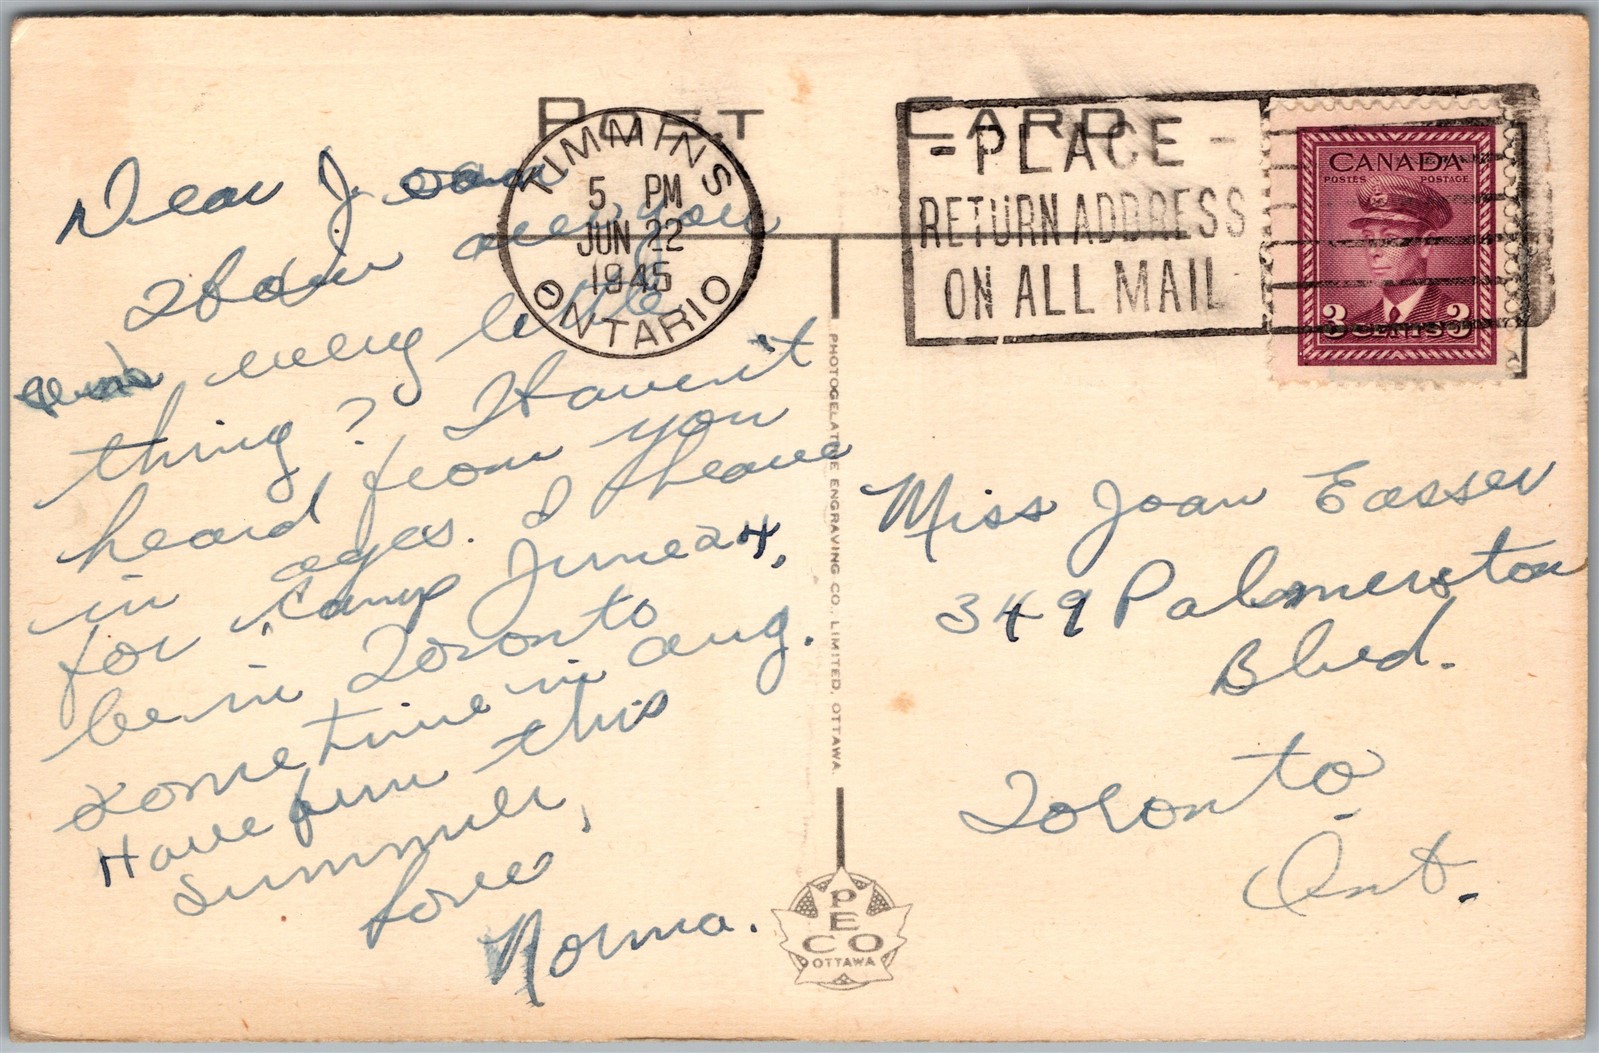 POST CARD
TIMMINS
5 PM
JUN 22
1945
ONTARIO
- PLACE -
RETURN ADDRESS
ON ALL MAIL
CANADA
POSTES POSTAGE
3 CENTS 3
Dear Joan
How are you
and every little
thing? Haven't
heard from you
in ages. I leave
for camp June 24,
be in Toronto
sometime in aug.
Have fun this
summer,
Love
Norma.
PHOTOGELATINE ENGRAVING CO., LIMITED, OTTAWA.
PECO
OTTAWA
Miss Joan Easser
349 Palmerston
Blvd.
Toronto
Ont.